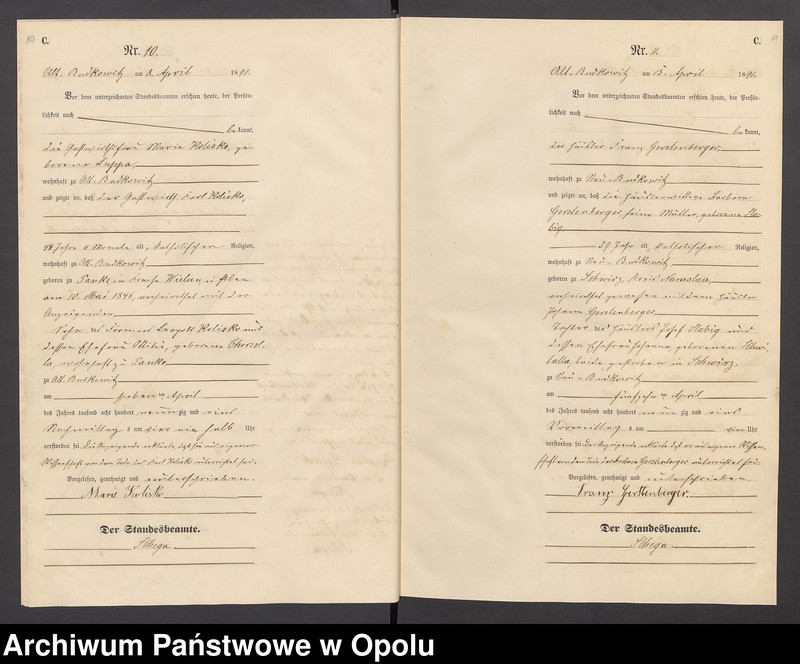 C.
Nr. 10.
Alt-Budkowitz am 8. April 1891.
Vor dem unterzeichneten Standesbeamten erschien heute, der Persön-
lichkeit nach
bekannt,
die Gastwirthsfrau Marie Kolisko, ge-
borene Luppa,
wohnhaft zu Alt-Budkowitz
und zeigte an, daß der Gastwirth Karl Kolisko,
44 Jahre 11 Monate alt, katholischer Religion,
wohnhaft zu Alt-Budkowitz
geboren zu Panke im Kreise Wielun, in Polen
am 10. Mai 1846, verheirathet mit der
Anzeigenden
Sohn des Leopold Kolisko und
dessen Ehefrau geborene
wohnhaft zu Panke,
zu Alt-Budkowitz
am sieben ten April
des Jahres tausend acht hundert neun zig und eins
Nachmittag s um vier ein halb Uhr
verstorben sei. Die Anzeigende erklärte, daß sie aus eigener
Wissenschaft von dem Tode des Karl Kolisko unterrichtet sei.
Vorgelesen, genehmigt und unterschrieben.
Marie Kolisko
Der Standesbeamte.
C.
Nr. 11.
Alt-Budkowitz am 15. April 1891.
Vor dem unterzeichneten Standesbeamten erschien heute, der Persön-
lichkeit nach
bekannt,
der Häusler Franz Gerstenberger
wohnhaft zu Neu-Budkowitz
und zeigte an, daß die Häuslerwittwe Barbara
Gerstenberger, seine Mutter, geborene Sla-
big
59 Jahr alt, katholischer Religion,
wohnhaft zu Neu-Budkowitz
geboren zu Schwirz, Kreis Namslau,
verheirathet gewesen mit dem Häusler
Johann Gerstenberger
Tochter des Häuslers Josef Slabig und
dessen Ehefrau Johanna, geborenen
beide gestorben in Schwirz,
zu Neu-Budkowitz
am fünfzehn ten April
des Jahres tausend acht hundert neun zig und eins
Vormittag s um vier Uhr
verstorben sei. Der Anzeigende erklärte daß er aus eigener Wissen-
schaft von dem Tode der Barbara Gerstenberger unterrichtet sei.
Vorgelesen, genehmigt und unterschrieben
Franz Gerstenberger.
Der Standesbeamte.
Archiwum Państwowe w Opolu